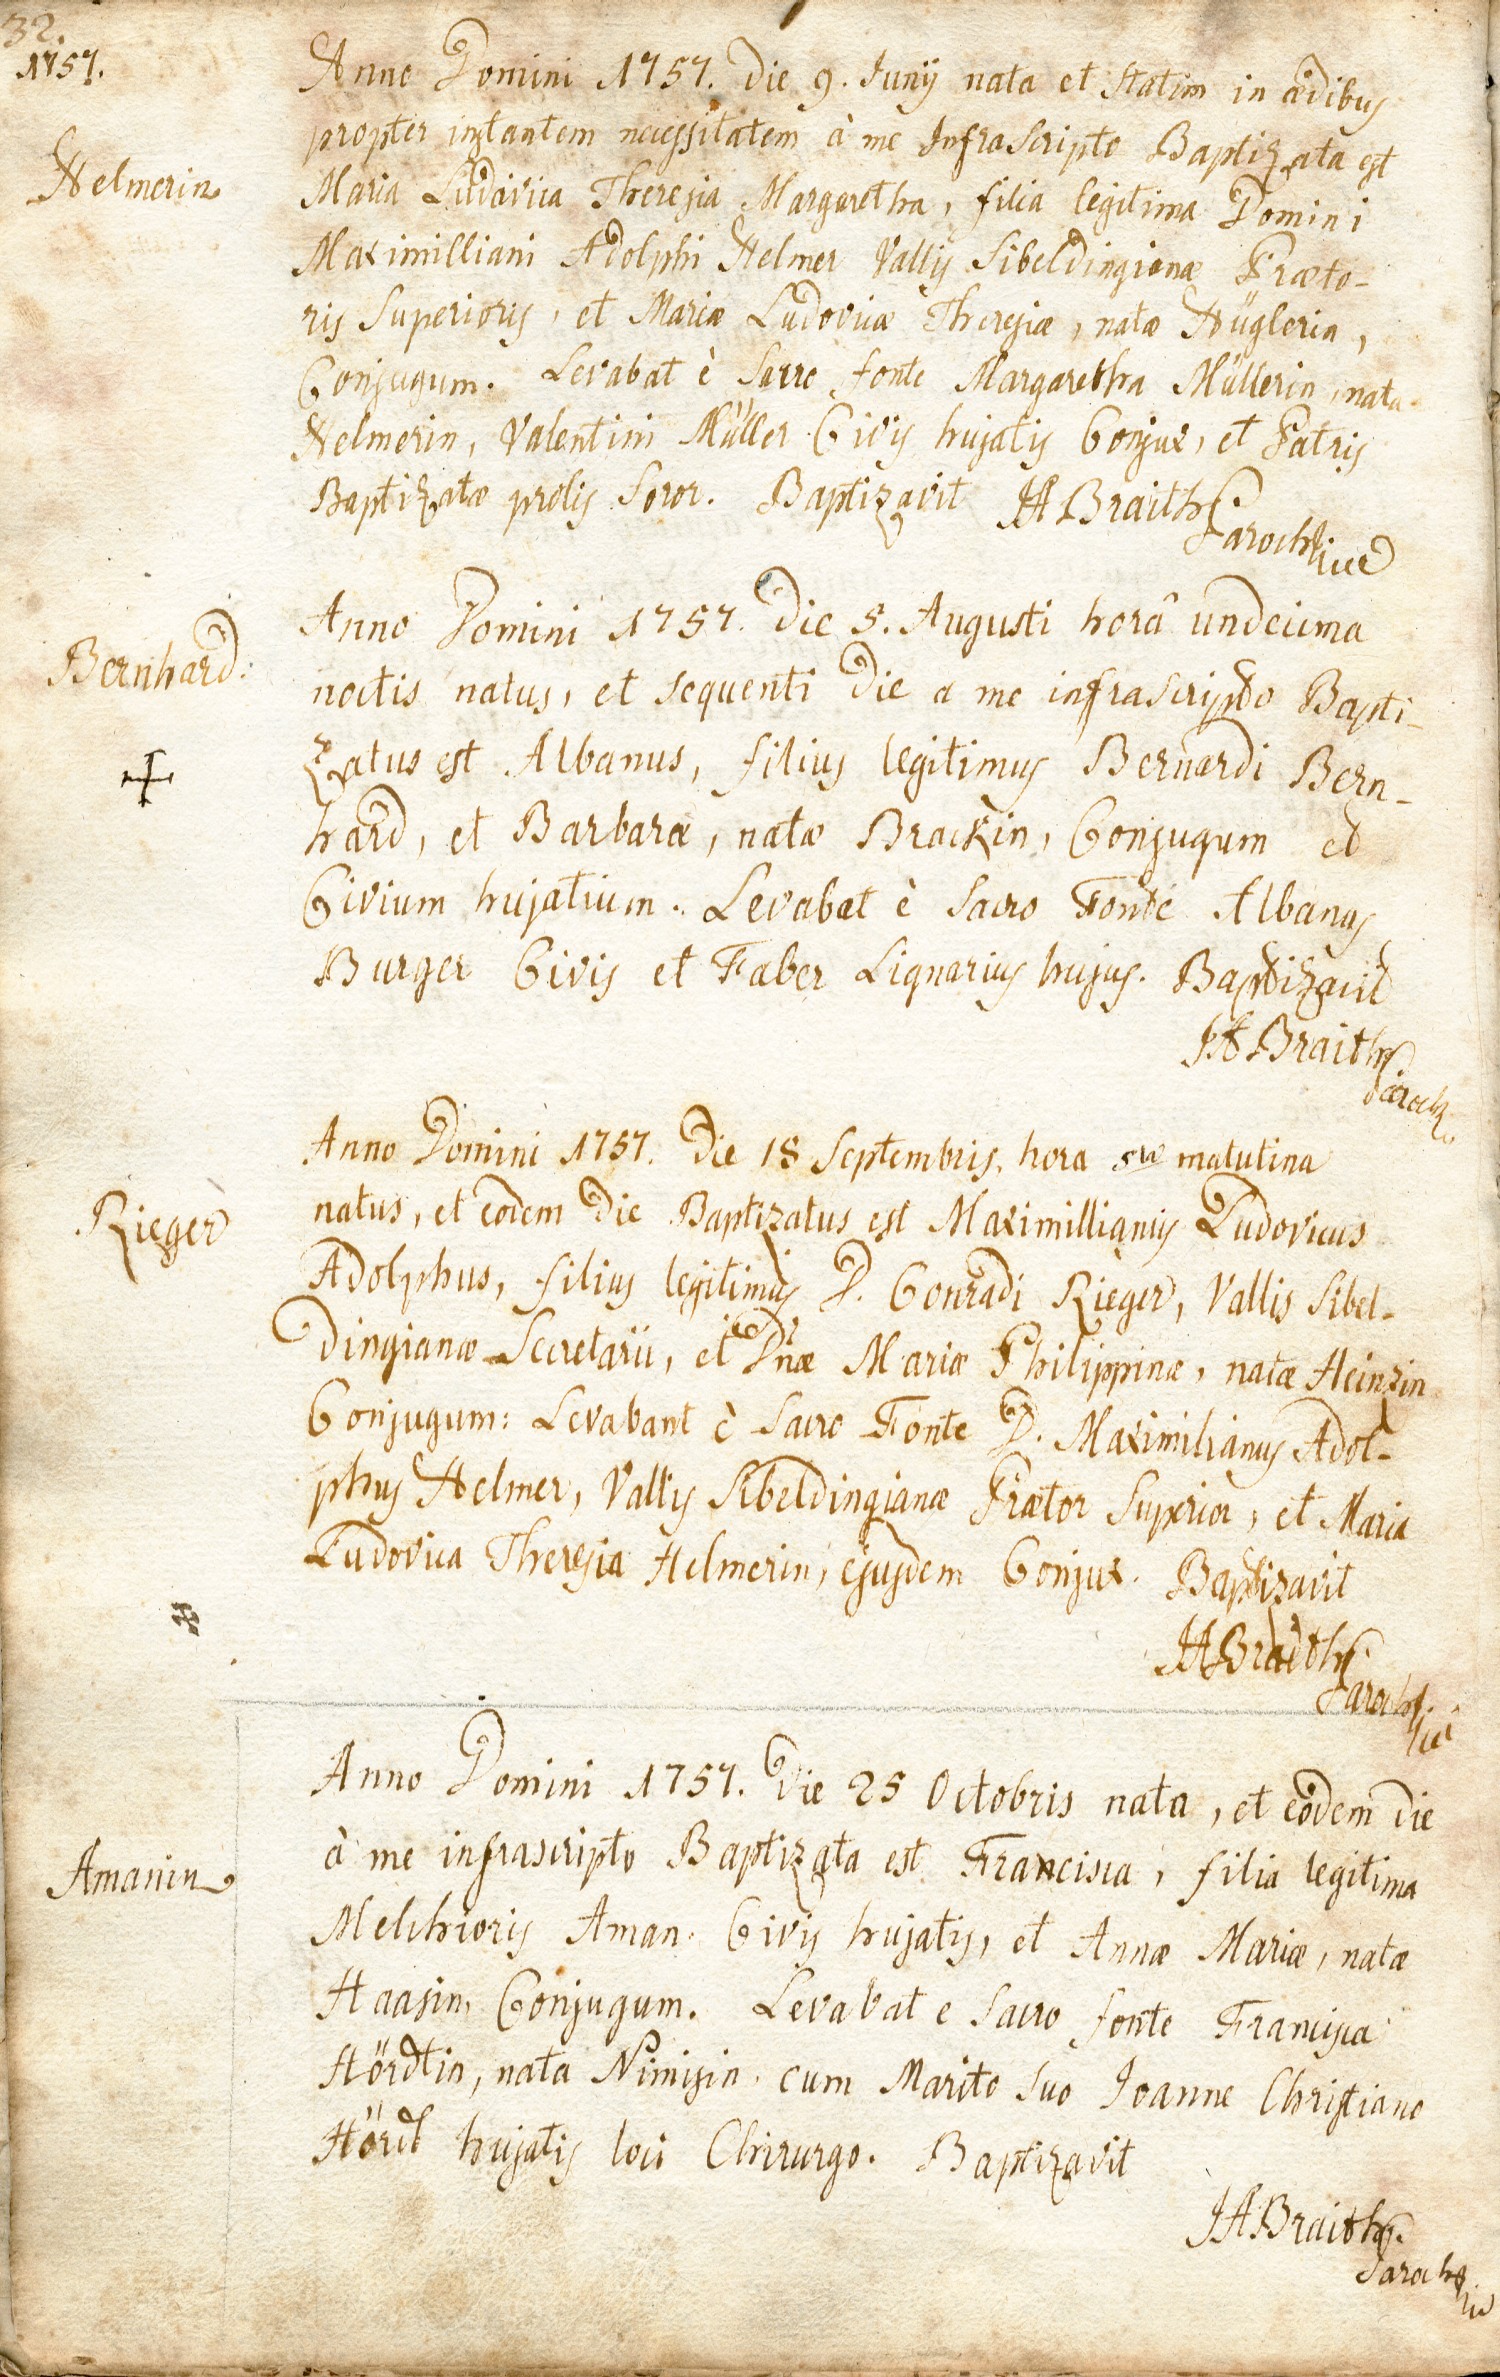 32.
1757.
Helmerin
Anno Domini 1757. die 9. Junÿ nata et statim in ædibus
propter instantem necessitatem à me Infrascripto Baptizata est
Maria Ludovica Theresia Margaretha, filia legitima Domini
Maximilliani Adolphi Helmer Vallis Sibeldingianæ Præto-
ris Superioris, et Mariæ Ludovicæ Theresiæ, natæ Hüglerin,
Conjugum. Levabat è Sacro fonte Margaretha Müllerin, nata
Helmerin, Valentini Müller Civis hujatis Conjux, et Patris
Baptizatæ prolis Soror. Baptizavit JA Braith
Paroch
Bernhard:
Anno Domini 1757. die 5. Augusti horâ undecima
noctis natus, et sequenti die a me infrascripto Bapti-
zatus est Albanus, filius legitimus Bernardi Bern-
hard, et Barbaræ, natæ Brackin, Conjugum et
Civium hujatium. Levabat è Sacro Fonte Albanus
Burger Civis et Faber Lignarius hujus. Baptizavit
JA Braith
Paroch
Rieger
Anno Domini 1757. die 18 Septembris, hora 5ta matutina
natus, et eodem die Baptizatus est Maximillianus Ludovicus
Adolphus, filius legitimus D. Conradi Rieger, Vallis Sibel-
dingianæ Secretarii, et Dnæ Mariæ Philippinæ, natæ Heinzin
Conjugum: Levabant è Sacro Fonte D. Maximilianus Adol-
phus Helmer, Vallis Sibeldingianæ Prætor Superior, et Maria
Ludovica Theresia Helmerin, ejusdem Conjux. Baptizavit
JA Braith
Paroch
Amanin
Anno Domini 1757. die 25 Octobris nata, et eodem die
à me infrascripto Baptizata est Francisca, filia legitima
Melchioris Aman. Civis hujatis, et Annæ Mariæ, natæ
Haasin, Conjugum. Levabat e Sacro fonte Francisca
Hördtin, nata Nimisin. cum Marito Suo Joanne Christiano
Hördt hujatis loci Chirurgo. Baptizavit
JA Braith
Paroch